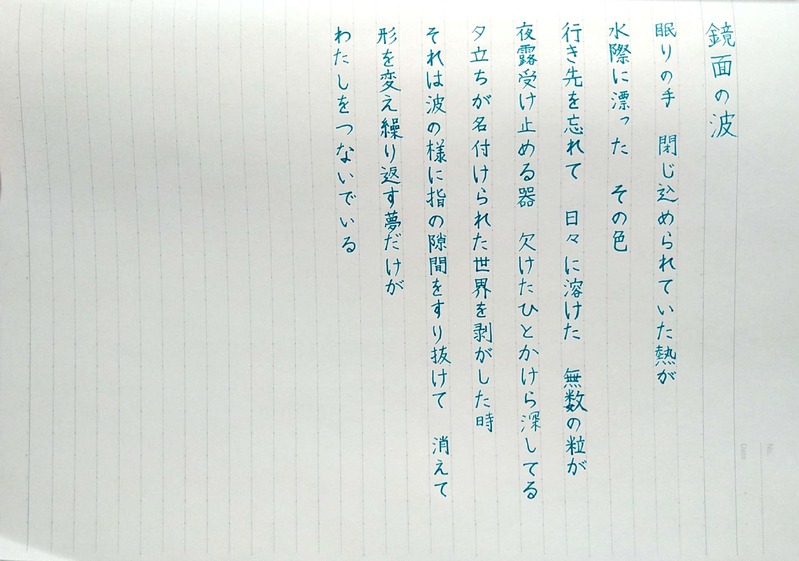 鏡面の波
眠りの手　閉じ込められていた熱が
水際に漂った　その色
行き先を忘れて　日々に溶けた　無数の粒が
夜露受け止める器　欠けたひとかけら深してる
夕立ちが名付けられた世界を剥がした時
それは波の様に指の隙間をすり抜けて　消えて
形を変え繰り返す夢だけが
わたしをつないでいる
No.
Date